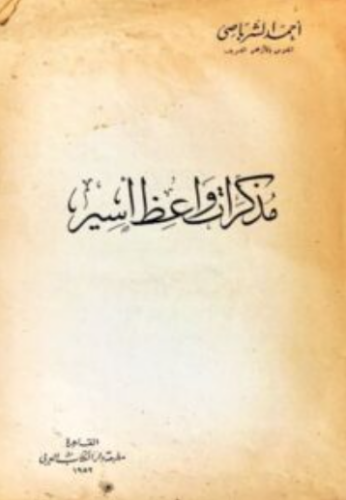 أحمد الشرباصي
المدرس بالأزهر الشريف
مذكرات واعظ أسير
القاهرة
مطبعة دار الكتاب العربي
١٩٥٢